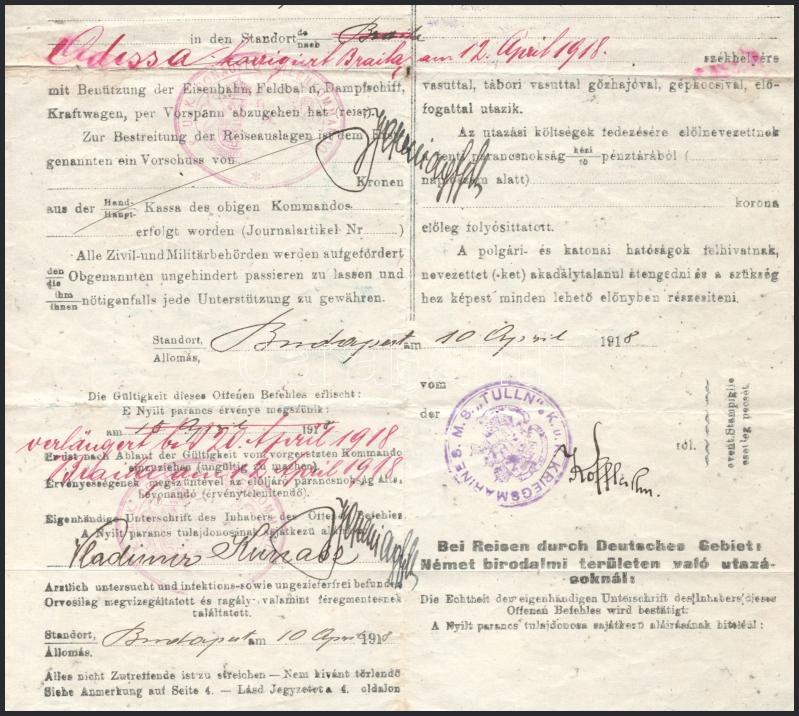 in den Standort de nach Braila
Odessa korrigiert Braila, am 12. April 1918.
székhelyére
mit Benützung der Eisenbahn, Feldbahn, Dampfschiff,
Kraftwagen, per Vorspann abzugehen hat (reist).
Zur Bestreitung der Reiseauslagen ist dem
genannten ein Vorschuss von
Kronen
aus der Hand- Haupt- Kassa des obigen Kommandos
erfolgt worden (Journalartikel Nr )
Alle Zivil- und Militärbehörden werden aufgefordert
den die Obgenannten ungehindert passieren zu lassen und
ihm ihnen nötigenfalls jede Unterstützung zu gewähren.
vasuttal, tábori vasuttal gőzhajóval, gépkocsival, elő-
fogattal utazik.
Az utazási költségek fedezésére előlnevezettnek
fenti parancsnokság kézi fő pénztárából (
naplószám alatt)
korona
előleg folyósittatott.
A polgári- és katonai hatóságok felhivatnak,
nevezettet (-ket) akadálytalanul átengedni és a szükség
hez képest minden lehető előnyben részesiteni.
Standort, Állomás, Budapest am 10 April 1918
Die Gültigkeit dieses Offenen Befehles erlischt:
E Nyilt parancs érvénye megszünik:
am 1918
verlängert bis 20. April 1918
Er ist nach Ablauf der Gültigkeit vom vorgesetzten Kommando
einzuziehen (ungültig zu machen).
Braila, den 12. April 1918
Érvényességének megszüntével az előljáró parancsnokság által
bevonandó (érvénytelenitendő).
Eigenhändige Unterschrift des Inhabers des Offenen Befehles:
A Nyilt parancs tulajdonosának sajátkezű
Vladimir
Ärztlich untersucht und infektions- sowie ungezieferfrei befunden
Orvosilag megvizsgáltatott és ragály- valamint féregmentesnek
találtatott.
Standort, Állomás, Budapest am 10 April 1918
Alles nicht Zutreffende ist zu streichen — Nem kivánt törlendő
Siehe Anmerkung auf Seite 4. — Lásd Jegyzetet a 4. oldalon
vom
der
S. M. S. "TULLN" K. u. K. KRIEGSMARINE
től.
event. Stampiglie
esetleg pecsét.
Bei Reisen durch Deutsches Gebiet:
Német birodalmi területen való utazá-
soknál:
Die Echtheit der eigenhändigen Unterschrift des Inhabers dieses
Offenen Befehles wird bestätigt:
A Nyilt parancs tulajdonosa sajátkezű aláirásának hiteléül: